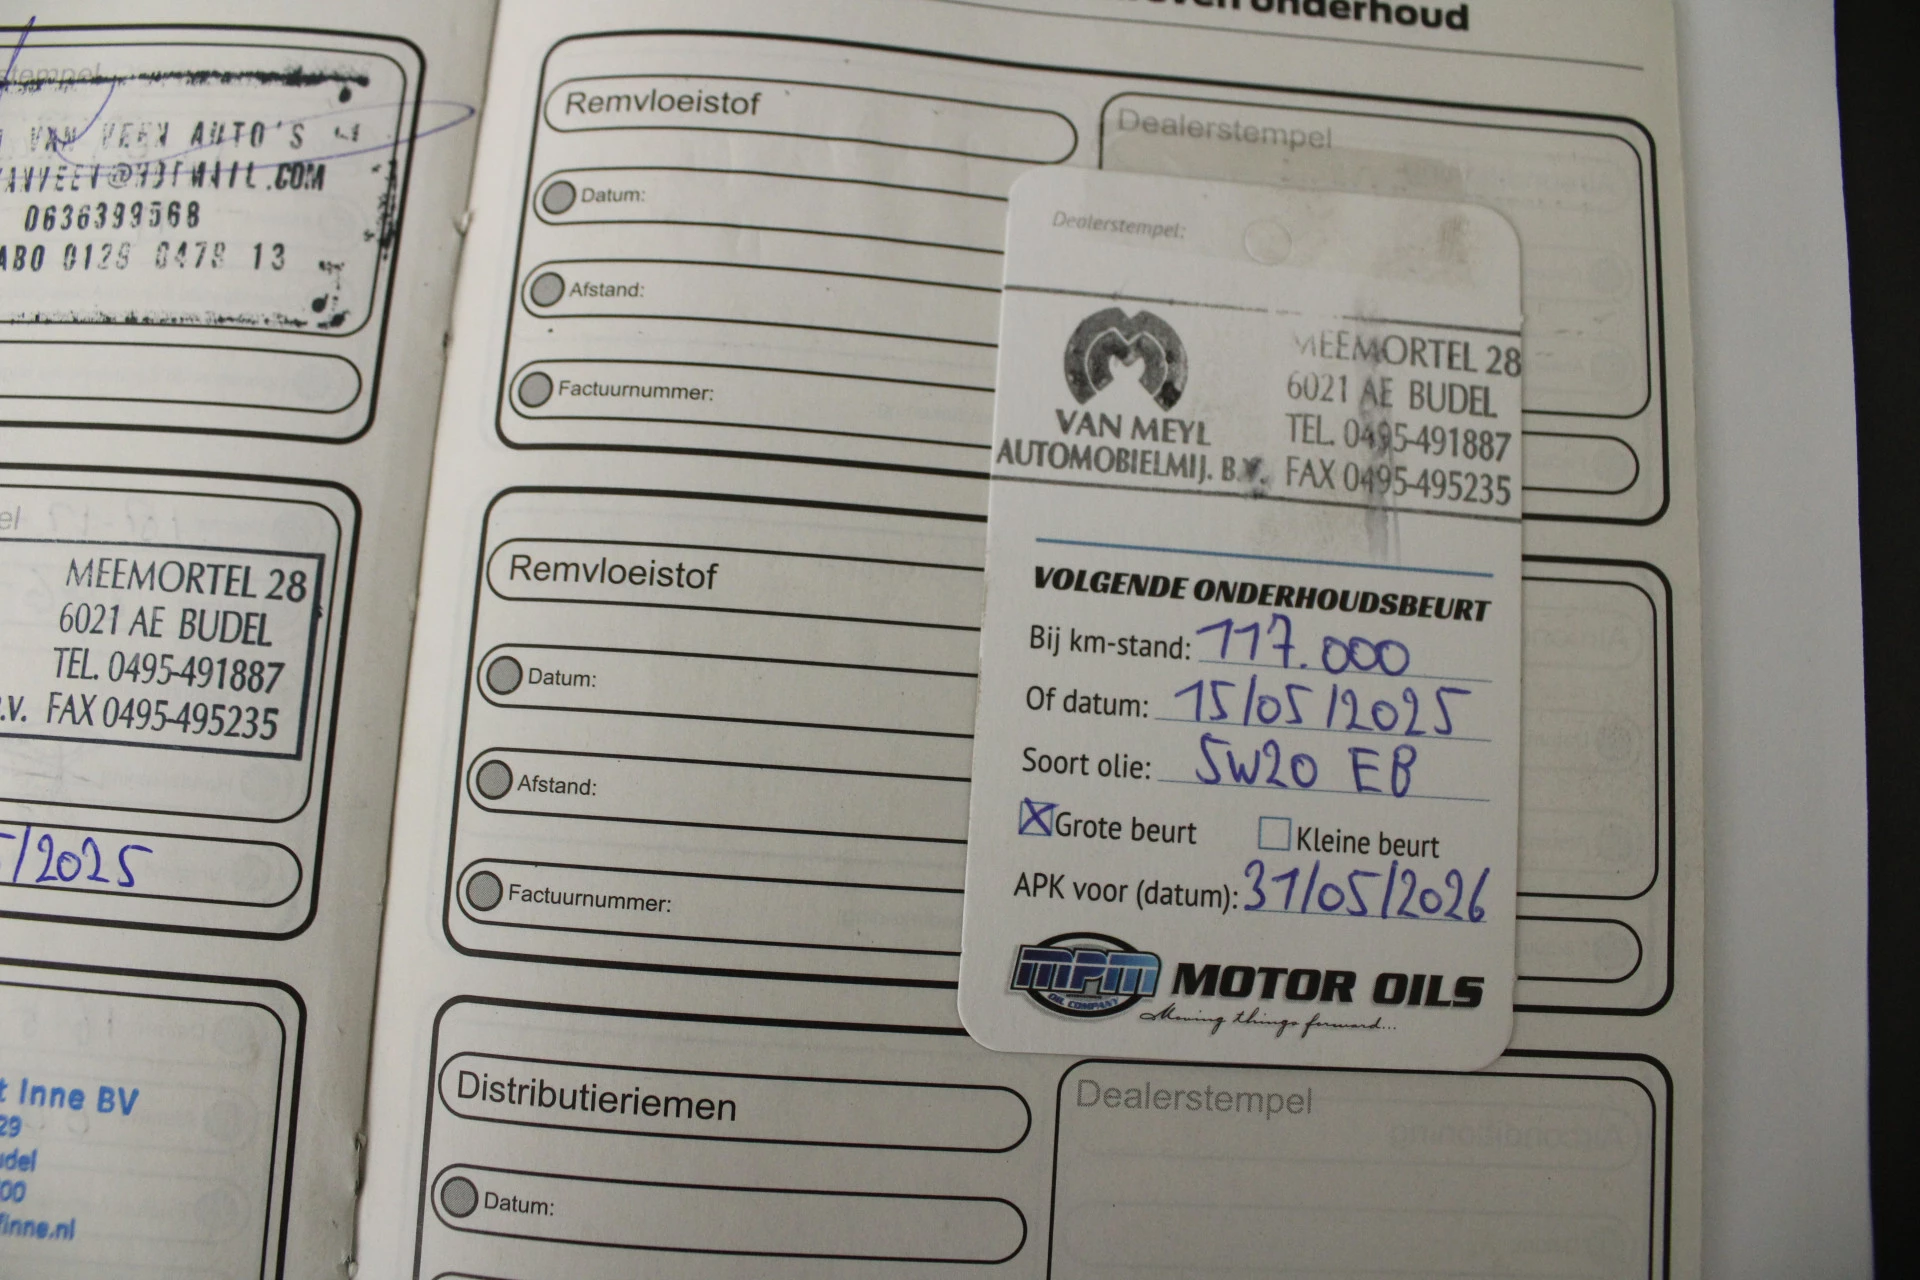 VAN VEEN AUTO'S
0636399568
13
MEEMORTEL 28
6021 AE BUDEL
TEL. 0495-491887
.V. FAX 0495-495235
/2025
t Inne BV
29
udel
00
finne.nl
onderhoud
Remvloeistof
Dealerstempel
Datum:
Afstand:
Factuurnummer:
Remvloeistof
Datum:
Afstand:
Factuurnummer:
Distributieriemen
Dealerstempel
Datum:
Dealerstempel:
VAN MEYL
AUTOMOBIELMIJ. B.V.
MEEMORTEL 28
6021 AE BUDEL
TEL. 0495-491887
FAX 0495-495235
VOLGENDE ONDERHOUDSBEURT
Bij km-stand: 117.000
Of datum: 15/05/2025
Soort olie: 5W20 EB
Grote beurt Kleine beurt
APK voor (datum): 31/05/2026
mpm MOTOR OILS
OIL COMPANY
Moving things forward...